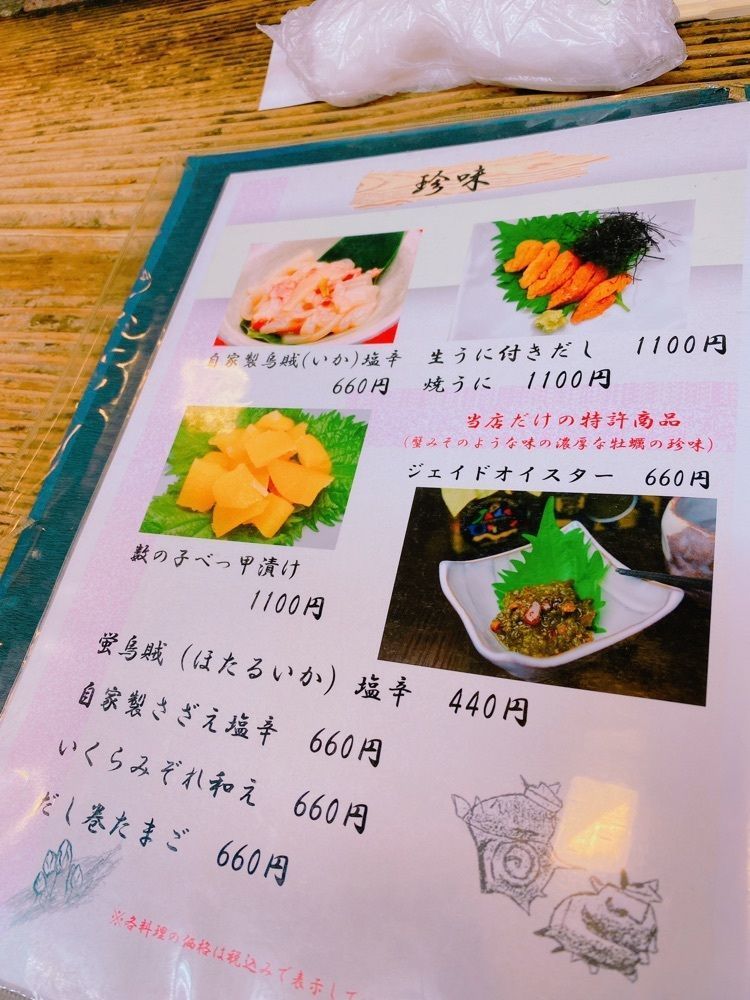 珍味
自家製烏賊(いか)塩辛
660円
生うに付きだし 1100円
焼うに 1100円
当店だけの特許商品
(蟹みそのような味の濃厚な牡蠣の珍味)
ジェイドオイスター 660円
数の子べっ甲漬け
1100円
蛍烏賊(ほたるいか)塩辛 440円
自家製さざえ塩辛 660円
いくらみぞれ和え 660円
だし巻たまご 660円
※各料理の価格は税込みで表示して